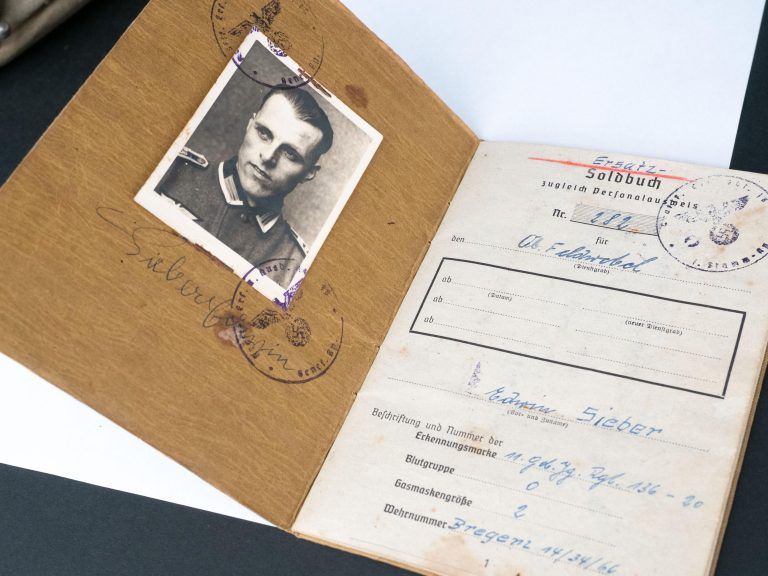 Sieber Edwin
Ersatz-
Soldbuch
zugleich Personalausweis
Nr. 282
für
den Ob. Feldwebel
(Dienstgrad)
ab
(Datum) (neuer Dienstgrad)
ab
ab
Edwin Sieber
(Vor- und Zuname)
Beschriftung und Nummer der
Erkennungsmarke 11. geb. Jg. Rgt. 136 - 20
Blutgruppe O
Gasmaskengröße 2
Wehrnummer Bregenz 14/34/66
1